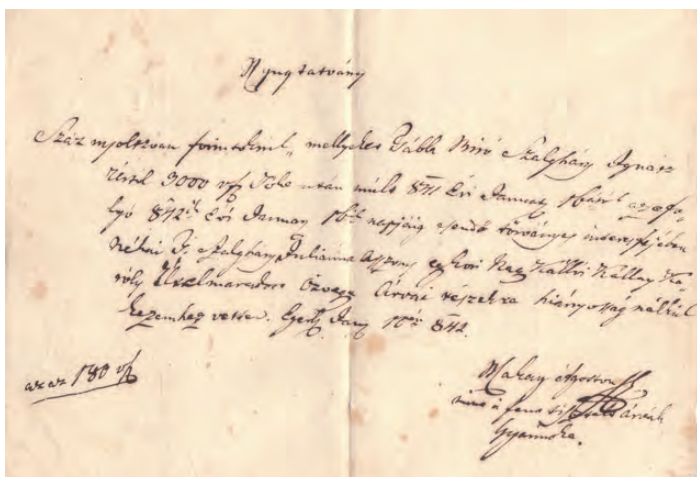 Nyugtatvány
Száz nyoltzvan forintokrul, mellyeket Tábla Biró Szalgháry Ignácz
Úrtól 3000 vf Tőke után múlt 841 Évi Januar. 16tól az a fo-
lyó 842ik Évi Januar. 16ik napjáig esendő törvényes interes fejében
néhai Szalgháry Juliánna Aszszony egykori Nagy Kállói Kállay Ká-
roly Úr elmaradott özvegye Árvái részekre hiányosság nélkül
kezemhez vettem. Egerb. Jan. 842.
az az 180 vf
Makay Ágoston
mint a fent tisztelt Árvák
Gyámnoka.